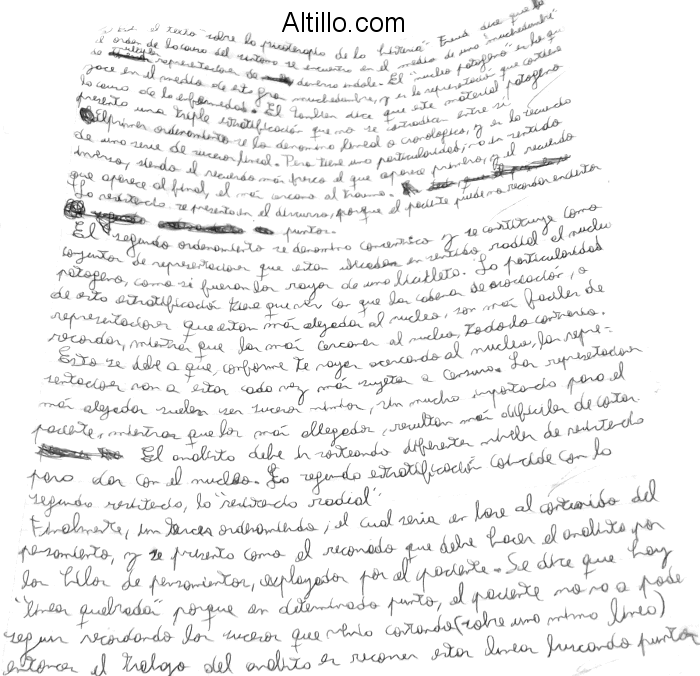 Altillo.com
el texto "sobre la psicoterapia de la histeria" Freud dice que
el orden de la causa del sintoma se encuentra en el medio de una "muchedumbre"
de representaciones de diversa indole. El "nucleo patogeno" es lo que
yace en el medio de esta gran muchedumbre, y es la representación que contiene
la causa de la enfermedad. El tambien dice que este material patogeno
presenta una triple estratificación que no se entre si.
El primer ordenamiento se lo denomina lineal o cronologico, y es la recuerdo
de una serie de sucesos lineal. Pero tiene una particularidad, no en sentido
inverso, siendo el recuerdo más fresco el que aparece primero, y el recuerdo
que aparece al final, el más cercano al trauma.
La resistencia se presenta en el discurso, porque el paciente puede no recordar en ciertos
puntos.
El segundo ordenamiento se denomina concentrico y se constituye como
conjuntos de representaciones que estan ubicadas en sentido radial el nucleo
patogeno, como si fueran los rayos de una bicicleta. La particularidad
de esta estratificación tiene que ver con que las cadenas de asociación, o
representaciones que estan más alejadas al nucleo, son más faciles de
recordar, mientras que las más cercanas al nucleo, todo lo contrario.
Esto se debe a que, conforme te vayas acercando al nucleo, las repre-
sentaciones van a estar cada vez más sujetas a censura. Las representaciones
más alejadas suelen ser sucesos nimios, sin mucha importancia para el
paciente, mientras que las más allegadas, resultan más dificiles de captar.
El analista debe ir sorteando diferentes niveles de resistencia
para dar con el nucleo. La segunda estratificación coincide con la
segunda resistencia, la "resistencia radial"
Finalmente, un tercer ordenamiento, el cual seria en base al contenido del
pensamiento, y se presenta como el recorrido que debe hacer el analista por
los hilos de pensamientos, explayados por el paciente. Se dice que hay
"lineas quebradas" porque en determinado punto, el paciente no va a pode
seguir recordando los sucesos que venia contando (sobre una misma linea)
entonces el trabajo del analista es recorrer estas lineas buscando puntos